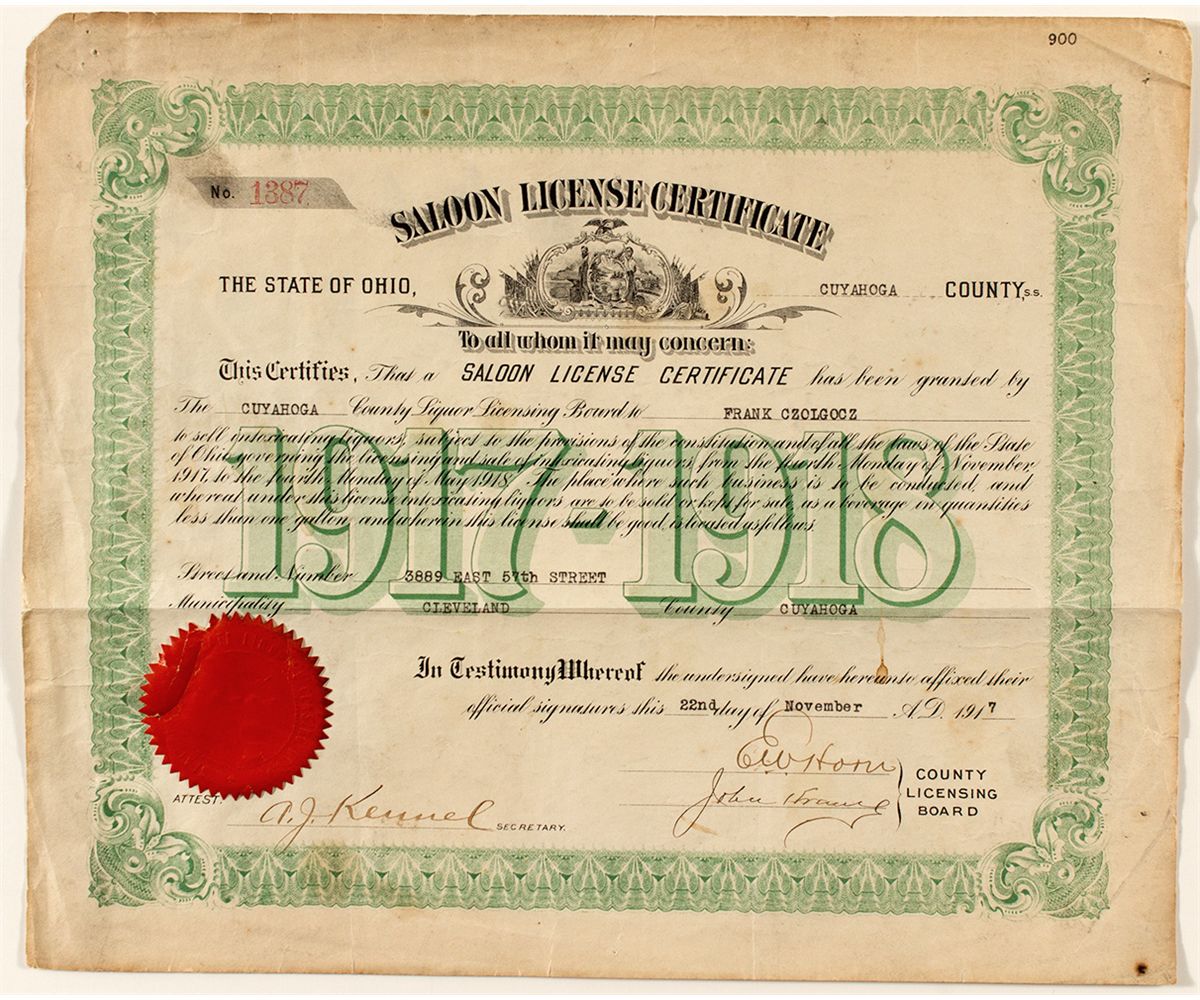 900
No. 1387
SALOON LICENSE CERTIFICATE
THE STATE OF OHIO, CUYAHOGA COUNTY, S.S.
To all whom it may concern:
This Certifies, That a SALOON LICENSE CERTIFICATE has been granted by
The CUYAHOGA County Liquor Licensing Board to FRANK CZOLGOCZ
to sell intoxicating liquors, subject to the provisions of the constitution and of all the laws of the State
of Ohio governing the licensing and sale of intoxicating liquors from the fourth Monday of November
1917, to the fourth Monday of May 1918. The place where such business is to be conducted, and
whereat under this license intoxicating liquors are to be sold or kept for sale as a beverage in quantities
less than one gallon, and wherein this license shall be good, is located as follows
1917-1918
Street and Number 3889 EAST 57th STREET
Municipality CLEVELAND County CUYAHOGA
In Testimony Whereof the undersigned have hereunto affixed their
official signatures this 22nd day of November A.D. 1917
E W Horn
John Kraus
COUNTY
LICENSING
BOARD
ATTEST:
A. J. Kennel SECRETARY.